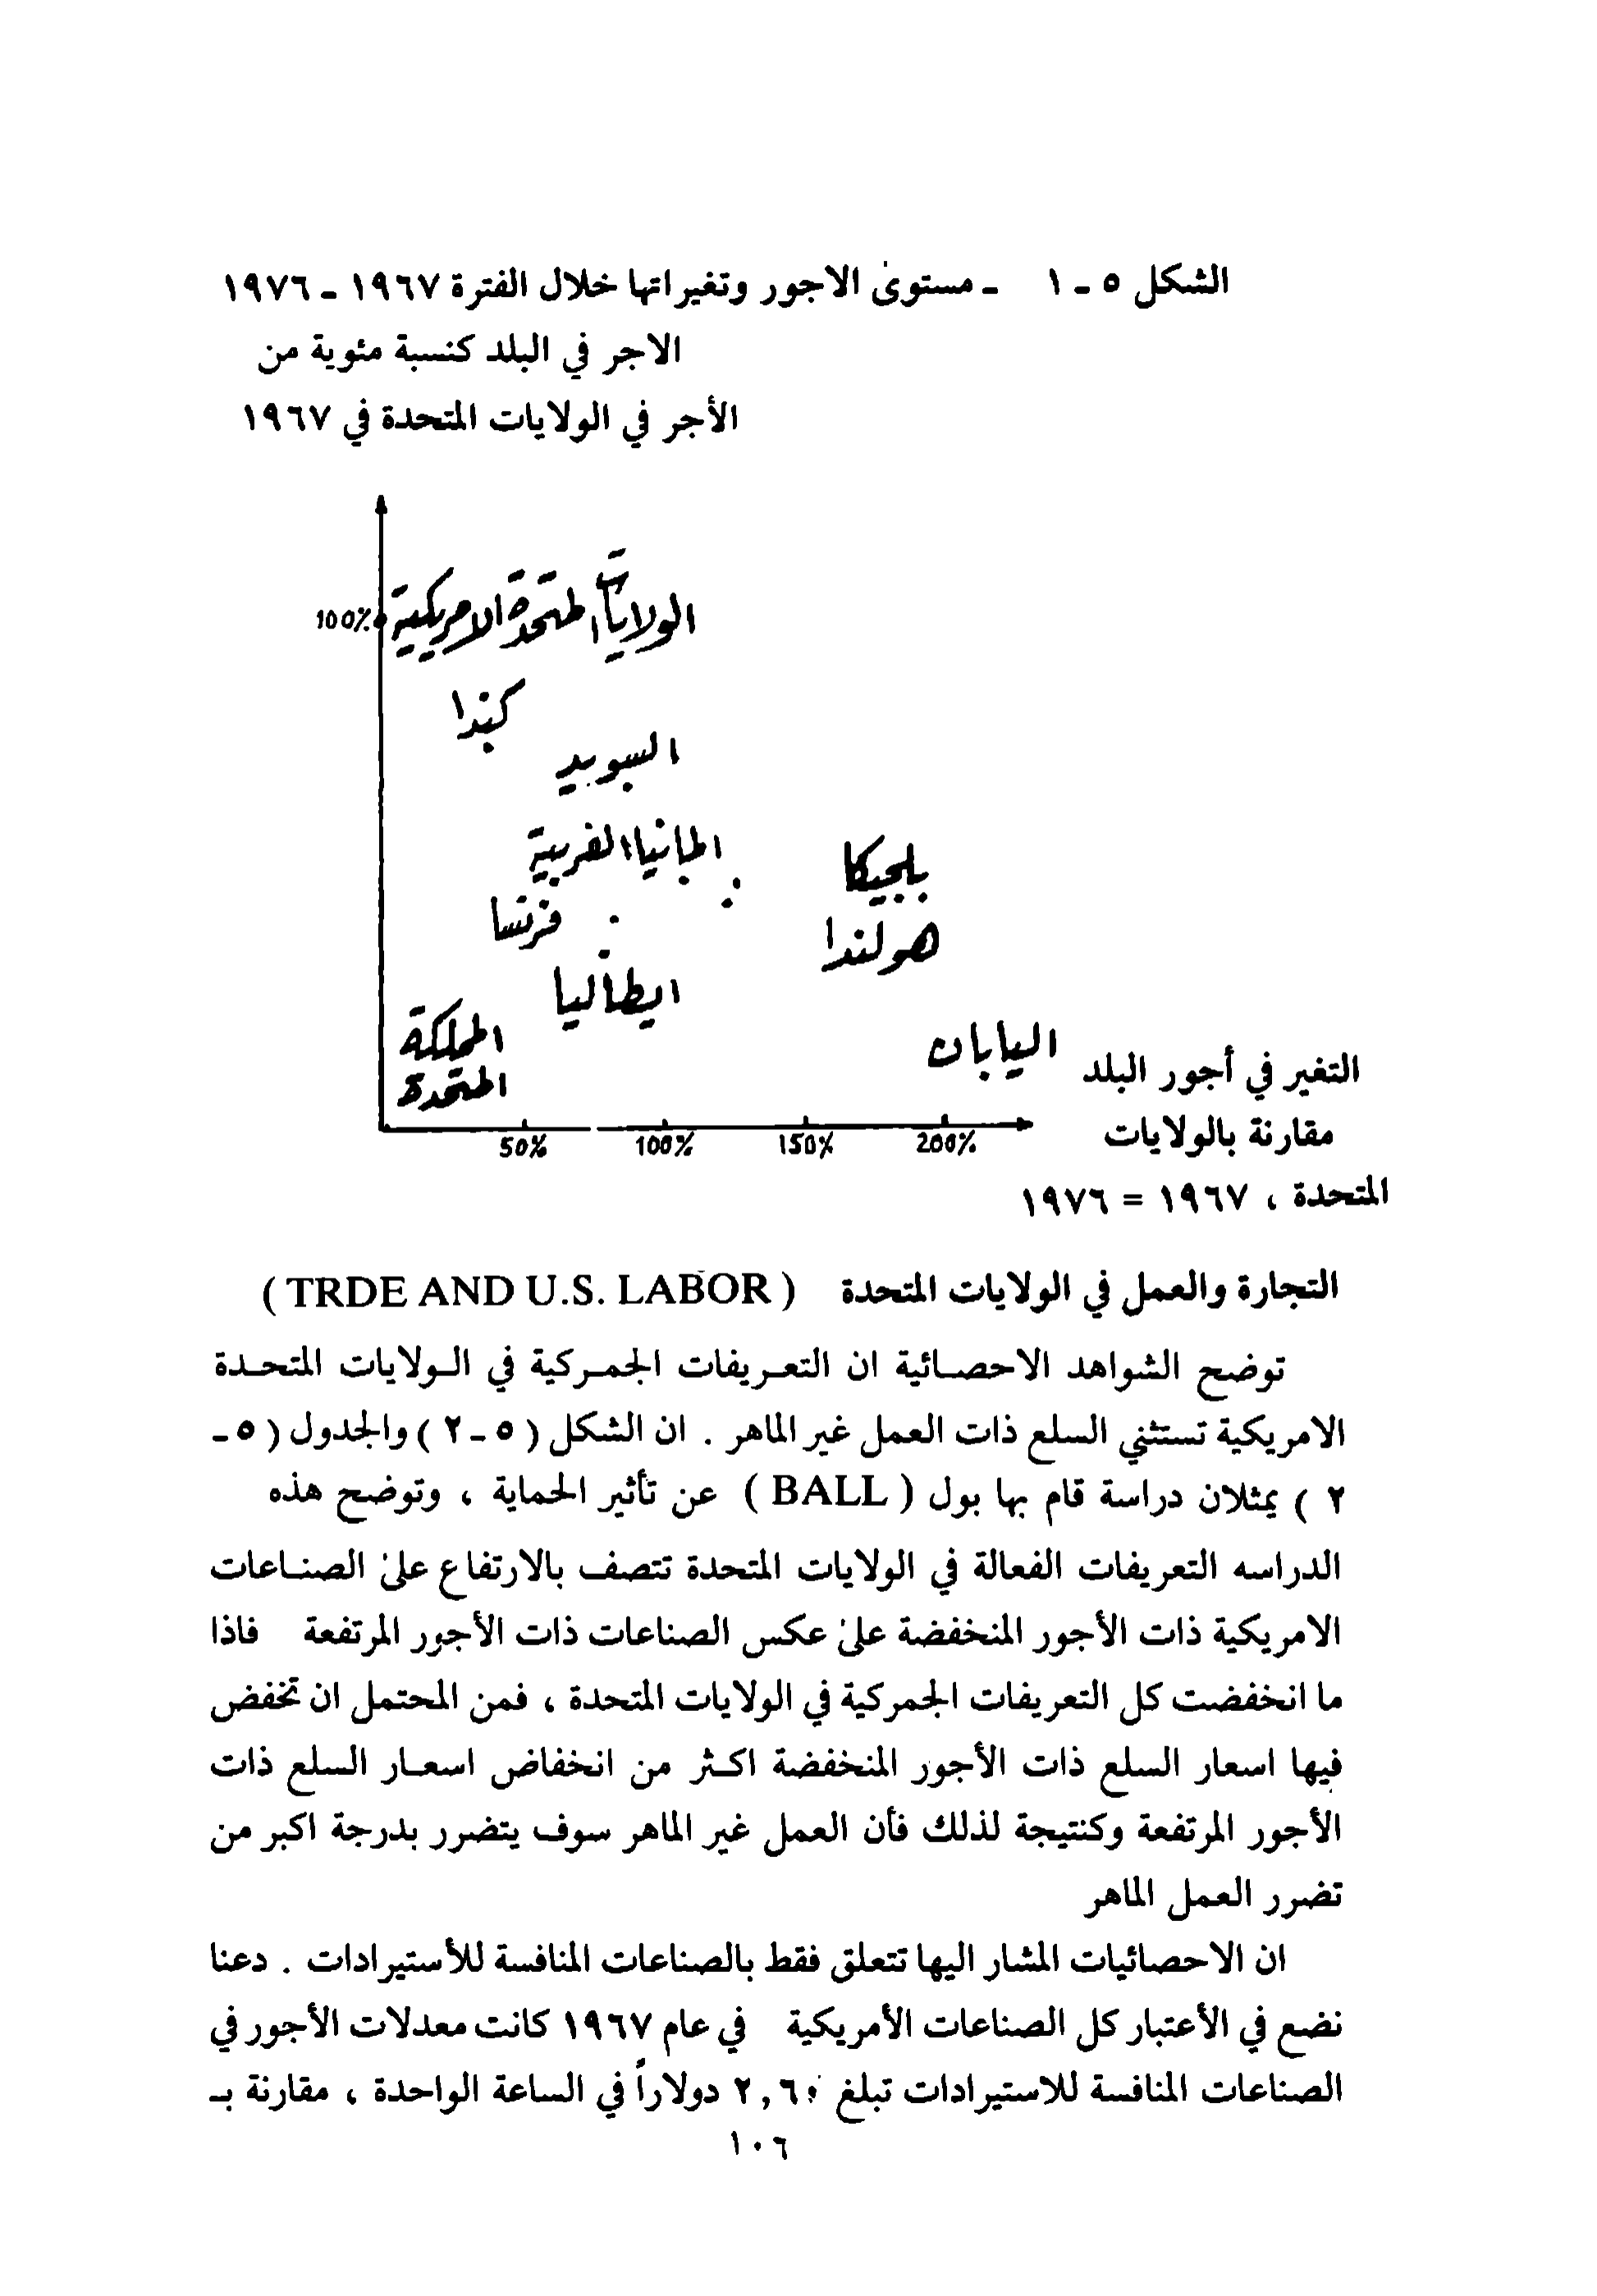 الشكل ٥ ـ ١ ـ مستوىٰ الاجور وتغيراتها خلال الفترة ١٩٦٧ ـ ١٩٧٦
الاجر في البلد كنسبة مئوية من
الأجر في الولايات المتحدة في ١٩٦٧
100% الولايات المتحدة الامريكية
كندا
السويد
المانيا الغربية
بلجيكا
فرنسا
هولندا
ايطاليا
المملكة
المتحدة
اليابان
التغير في أجور البلد
50% 100% 150% 200%
مقارنة بالولايات
المتحدة ، ١٩٦٧ = ١٩٧٦
التجارة والعمل في الولايات المتحدة ( TRDE AND U.S. LABOR )
توضح الشواهد الاحصائية ان التعريفات الجمركية في الولايات المتحدة
الامريكية تستثني السلع ذات العمل غير الماهر . ان الشكل ( ٥ ـ ٢ ) والجدول ( ٥ ـ
٢ ) يمثلان دراسة قام بها بول ( BALL ) عن تأثير الحماية ، وتوضح هذه
الدراسه التعريفات الفعالة في الولايات المتحدة تتصف بالارتفاع علىٰ الصناعات
الامريكية ذات الأجور المنخفضة علىٰ عكس الصناعات ذات الأجور المرتفعة فاذا
ما انخفضت كل التعريفات الجمركية في الولايات المتحدة ، فمن المحتمل ان تخفض
فيها اسعار السلع ذات الأجور المنخفضة اكثر من انخفاض اسعار السلع ذات
الأجور المرتفعة وكنتيجة لذلك فأن العمل غير الماهر سوف يتضرر بدرجة اكبر من
تضرر العمل الماهر
ان الاحصائيات المشار اليها تتعلق فقط بالصناعات المنافسة للأستيرادات . دعنا
نضع في الأعتبار كل الصناعات الأمريكية في عام ١٩٦٧ كانت معدلات الأجور في
الصناعات المنافسة للاستيرادات تبلغ دولاراً في الساعة الواحدة ، مقارنة بـ
١٠٦